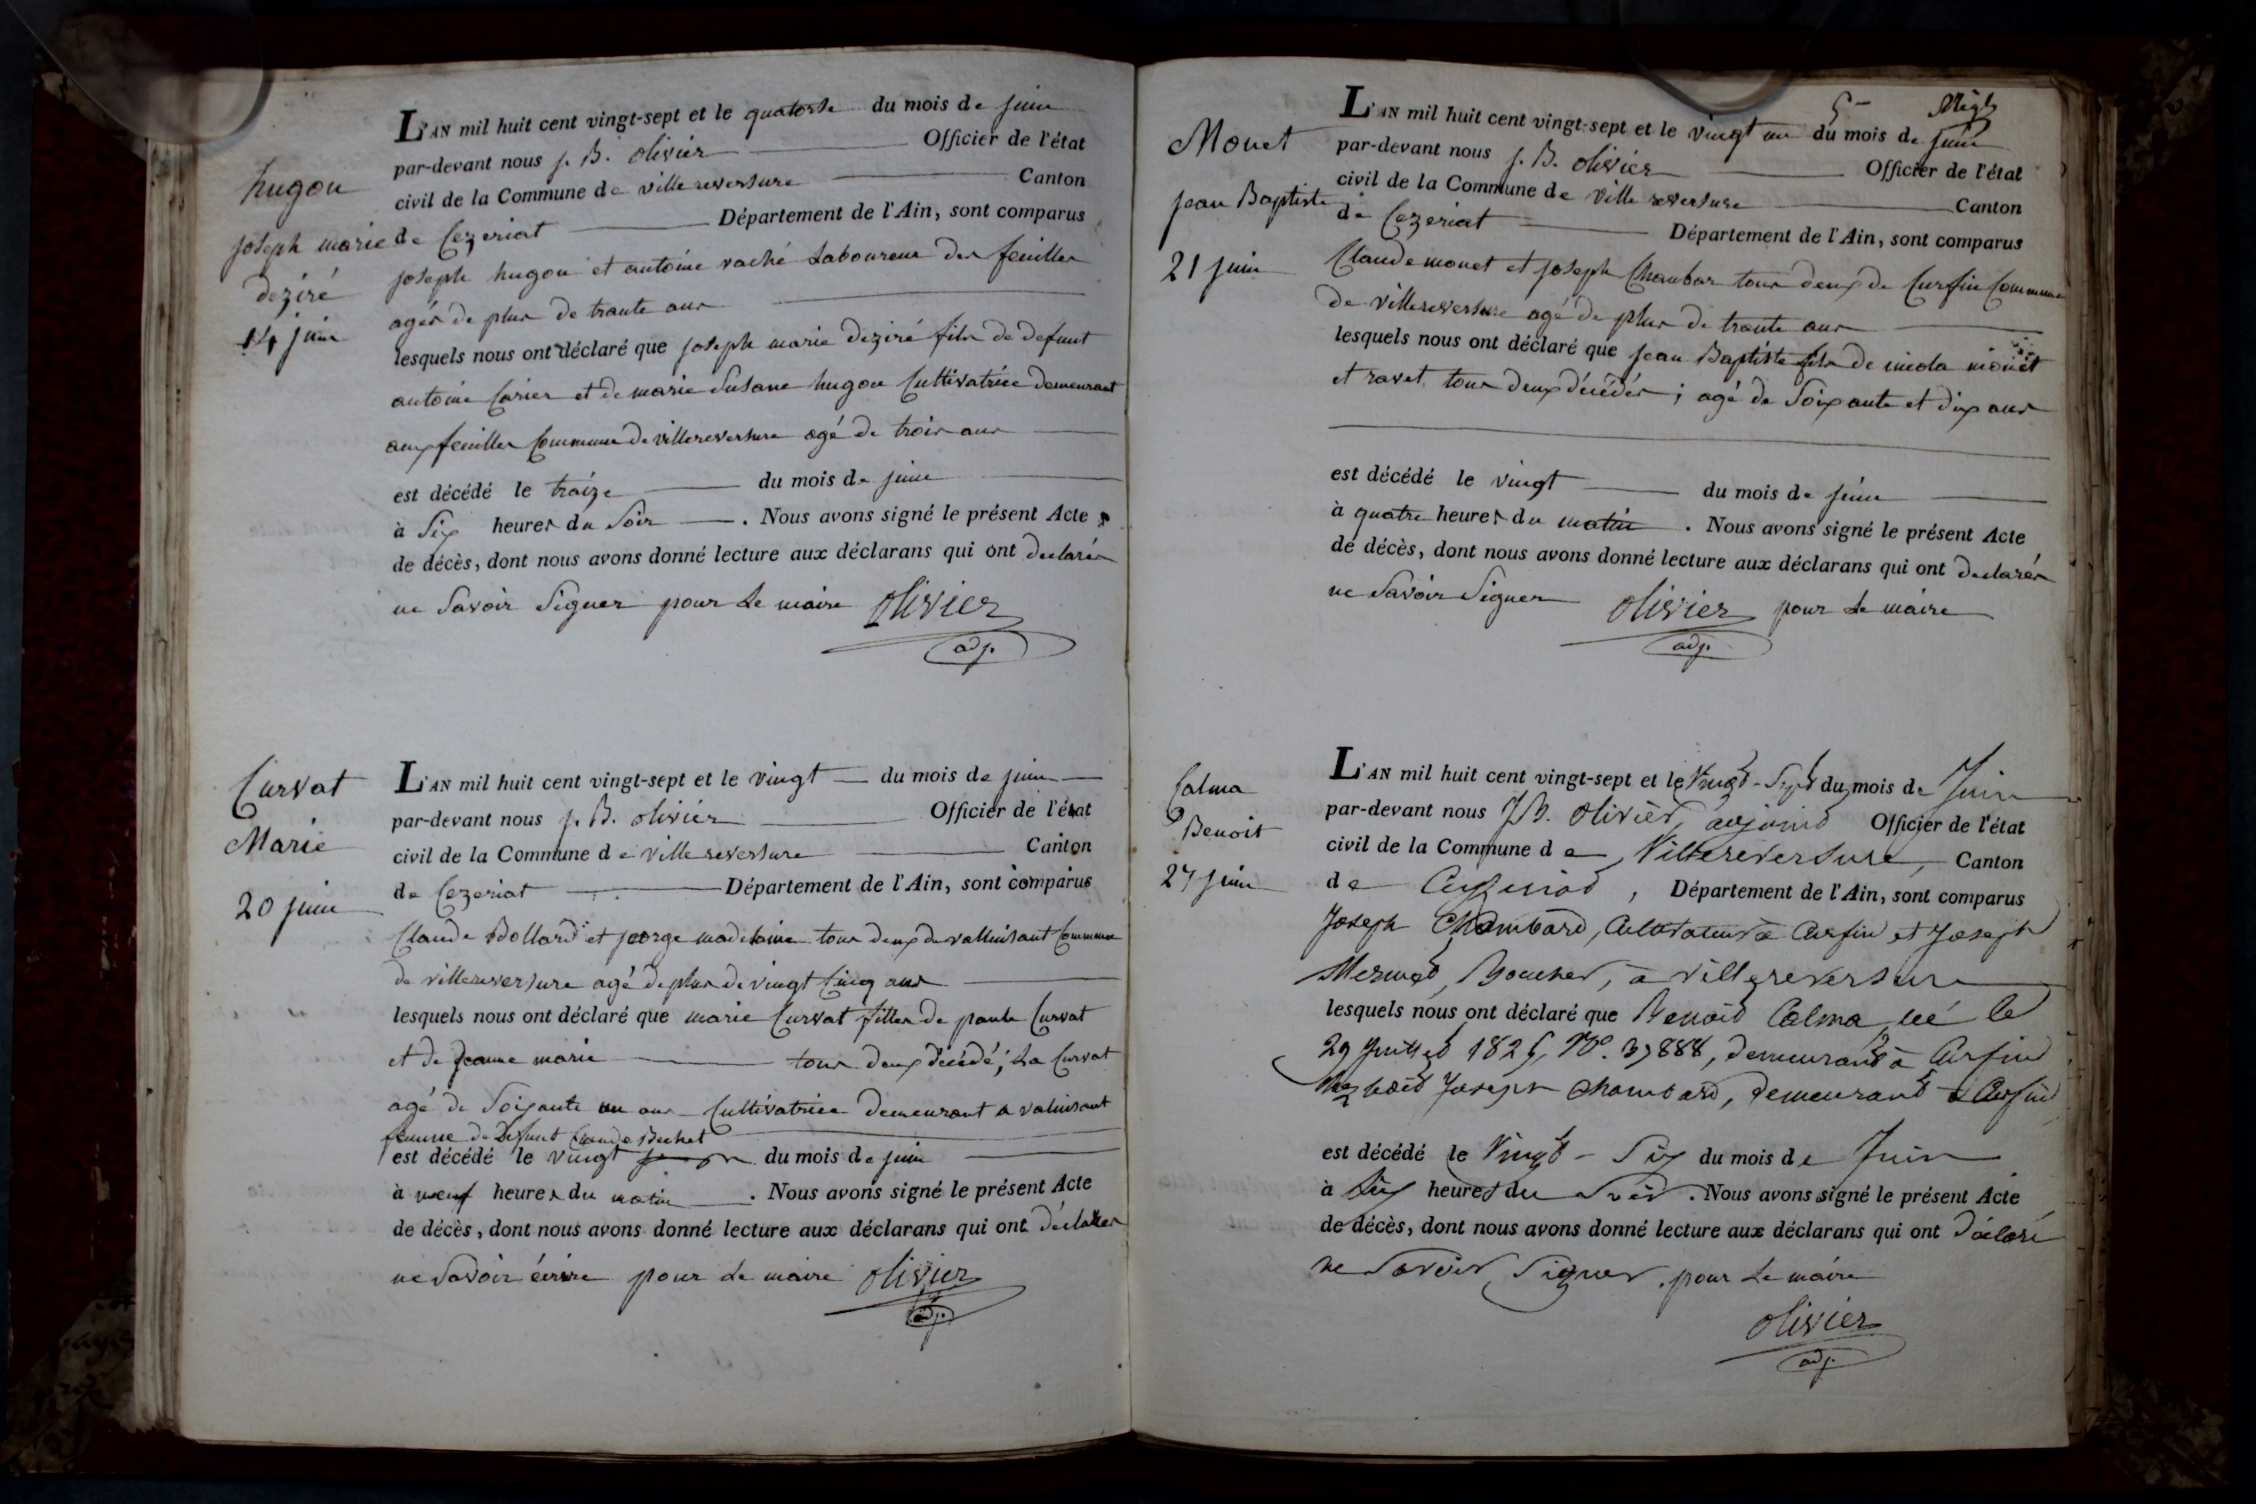 hugon
joseph marie
deziré
14 juin
L'AN mil huit cent vingt-sept et le quatorse du mois de juin
par-devant nous j. B. olivier Officier de l'état
civil de la Commune de villereversure Canton
de Cezeriat Département de l'Ain, sont comparus
joseph hugon et antoine vaché Laboureur des feuilles
agés de plus de trante ans
lesquels nous ont déclaré que joseph marie deziré fils de defunt
antoine Carier et de marie Susane hugon Cultivatrice demeurant
aux feuilles Commune de villereversure agé de trois ans
est décédé le traize du mois de juin
à Six heures du Soir . Nous avons signé le présent Acte
de décès, dont nous avons donné lecture aux déclarans qui ont declarés
ne Savoir Signer pour Le maire olivier
adj.
Curvat
Marie
20 juin
L'AN mil huit cent vingt-sept et le vingt du mois de juin
par-devant nous j. B. olivier Officier de l'état
civil de la Commune de villereversure Canton
de Cezeriat Département de l'Ain, sont comparus
Claude Bollard et jeorge madelaine tous deux de valluisant Commune
de villereversure agé de plus de vingt Cinq ans
lesquels nous ont déclaré que marie Curvat filles de paule Curvat
et de jeanne marie tous deux décédé; La Curvat
agé de Soixante un ans Cultivatrice demeurant a valuisant
femme de Defunt Claude Bechet
est décédé le vingt du mois de juin
à neuf heures du matin . Nous avons signé le présent Acte
de décès, dont nous avons donné lecture aux déclarans qui ont déclarer
ne Savoir écrire pour Le maire olivier
adj.
5
Monet
jean Baptiste
21 juin
L'AN mil huit cent vingt-sept et le vingt un du mois de juin
par-devant nous j. B. olivier Officier de l'état
civil de la Commune de ville reversure Canton
de Cezeriat Département de l'Ain, sont comparus
Claude monet et joseph Chambar tous deux de Curfin Commune
de villereversure agé de plus de trante ans
lesquels nous ont déclaré que jean Baptiste fils de nicola monet
et ravet tous deux décédés; agé de Soixante et dix ans
est décédé le vingt du mois de juin
à quatre heures du matin . Nous avons signé le présent Acte
de décès, dont nous avons donné lecture aux déclarans qui ont declarés
ne Savoir Signer olivier pour Le maire
adj.
Calma
Benoit
27 juin
L'AN mil huit cent vingt-sept et le Vingt-Sept du mois de Juin
par-devant nous JB. Olivier, adjoint Officier de l'état
civil de la Commune de Villereversure, Canton
de Ceyzeriat, Département de l'Ain, sont comparus
Joseph Chambard, Cultivateur à Curfin et Joseph
Mermet, Boucher, à Villereversure
lesquels nous ont déclaré que Benoit Calma, né le
29 Juillet 1825, No. 37888, demeurant à Curfin
chez Joseph Chambard, demeurant à Curfin
est décédé le Vingt-Six du mois de Juin
à Six heures du Soir. Nous avons signé le présent Acte
de décès, dont nous avons donné lecture aux déclarans qui ont déclaré
ne Savoir Signer. pour Le maire
olivier
adj.